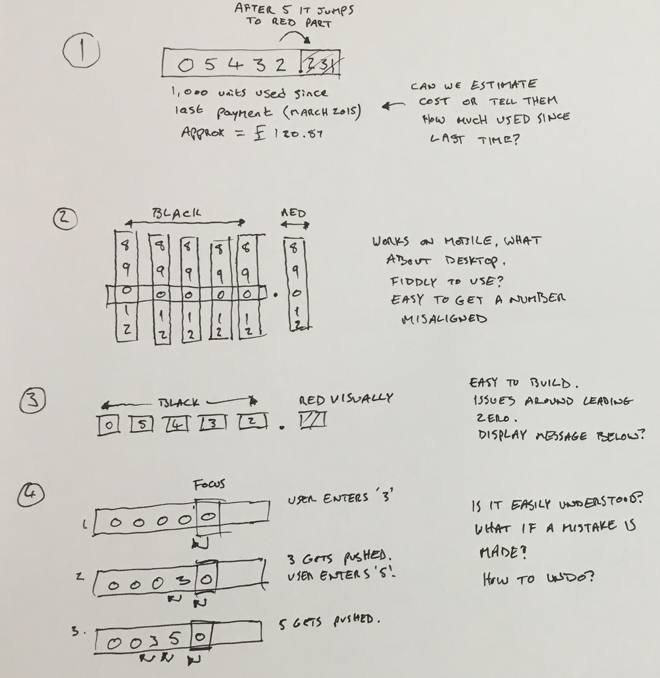 AFTER 5 IT JUMPS
TO RED PART
1
0 5 4 3 2 . 231
1,000 units used since
last payment (MARCH 2015)
Approx = £120.87
CAN WE ESTIMATE
COST OR TELL THEM
HOW MUCH USED SINCE
LAST TIME?
2
BLACK RED
8 8 8 8 8 8
9 9 9 9 9 9
0 0 0 0 0 . 0
1 1 1 1 1 1
2 2 2 2 2 2
WORKS ON MOBILE, WHAT
ABOUT DESKTOP.
FIDDLY TO USE?
EASY TO GET A NUMBER
MISALIGNED
3
BLACK RED VISUALLY
0 5 4 3 2 .
EASY TO BUILD.
ISSUES AROUND LEADING
ZERO.
DISPLAY MESSAGE BELOW?
4
FOCUS
1. 0 0 0 0 0
USER ENTERS '3'
2 0 0 0 3 0
3 GETS PUSHED.
USER ENTERS '5'.
3. 0 0 3 5 0
5 GETS PUSHED.
IS IT EASILY UNDERSTOOD?
WHAT IF A MISTAKE IS
MADE?
HOW TO UNDO?